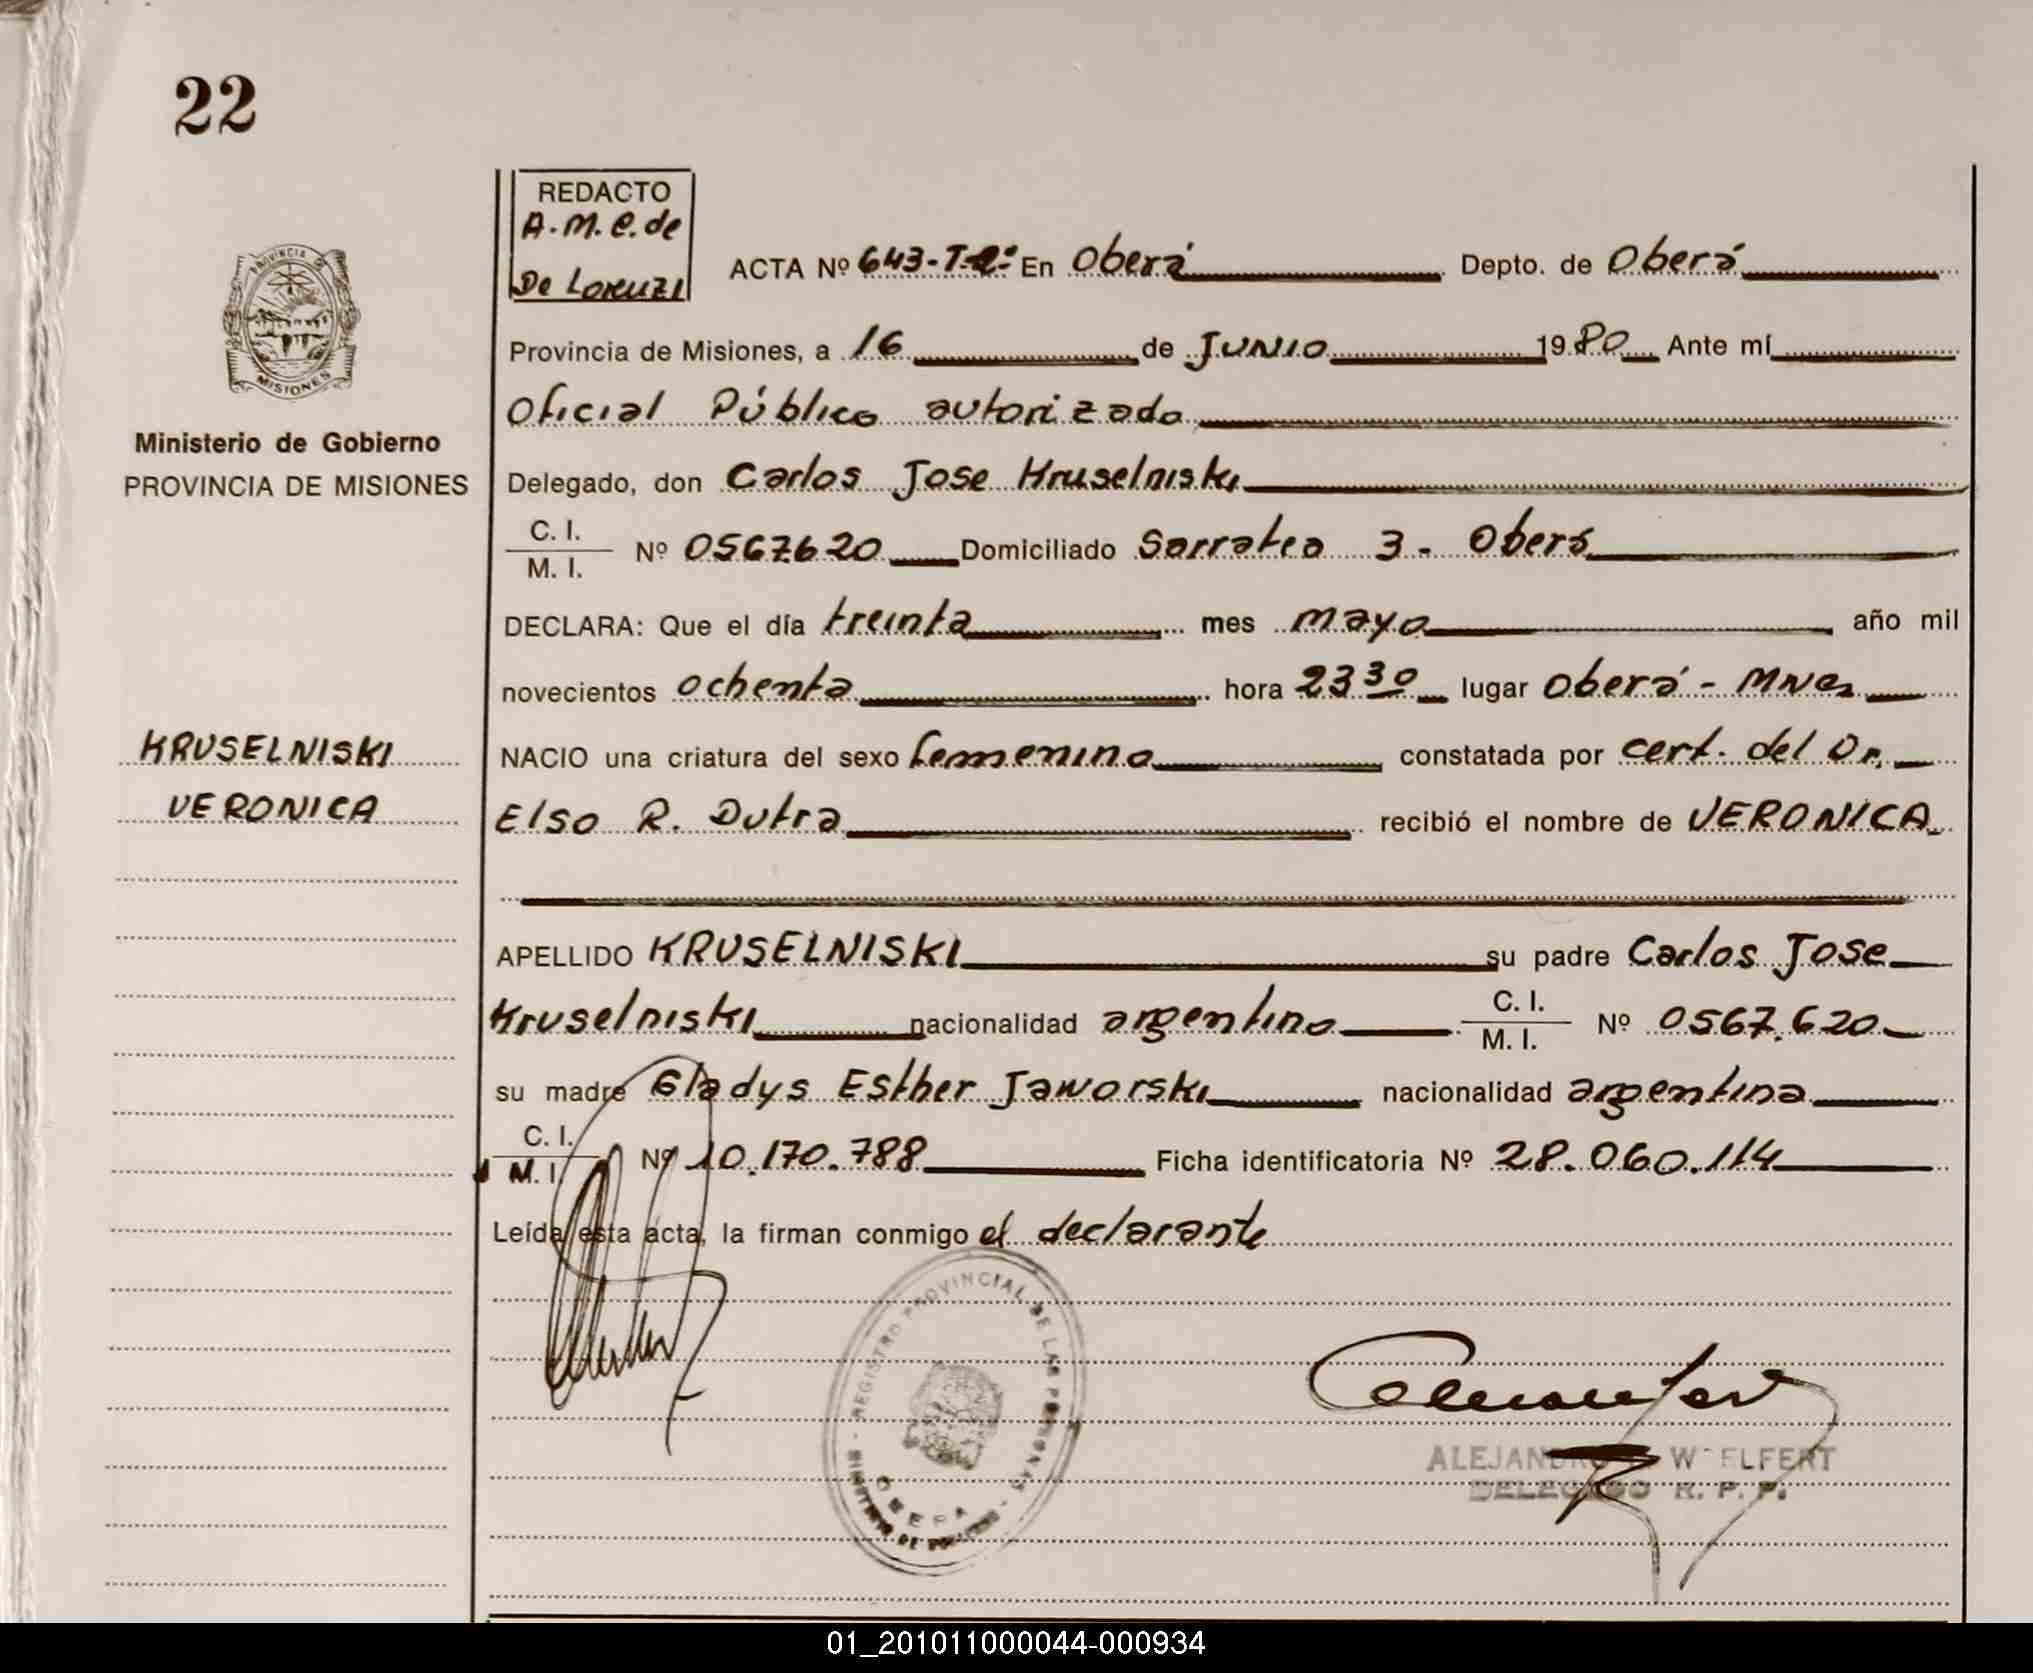 22
REDACTO
A. M. C. de
De Lorenzi
ACTA Nº 643-T-2º En Oberá Depto. de Oberá
Provincia de Misiones, a 16 de JUNIO 1980 Ante mí
Oficial Público autorizado
Delegado, don Carlos Jose Kruselniski
C. I.
M. I. Nº 0567620 Domiciliado Sarratea 3 - Oberá
DECLARA: Que el día treinta mes mayo año mil
novecientos ochenta hora 23 30 lugar Oberá - Mnes
NACIO una criatura del sexo femenino constatada por cert. del Dr.
Elso R. Dutra recibió el nombre de VERONICA
APELLIDO KRUSELNISKI su padre Carlos Jose
Kruselniski nacionalidad argentino C. I.
M. I. Nº 0567.620
su madre Gladys Esther Jaworski nacionalidad argentina
C. I.
M. I. Nº 10.170.788 Ficha identificatoria Nº 28.060.114
Leída esta acta, la firman conmigo el declarante
PROVINCIA DE
MISIONES
Ministerio de Gobierno
PROVINCIA DE MISIONES
KRUSELNISKI
VERONICA
REGISTRO PROVINCIAL DE LAS PERSONAS
MINISTERIO DE GOBIERNO
OBERA
ALEJANDRO
DELEGADO R. P. P.
01_201011000044-000934